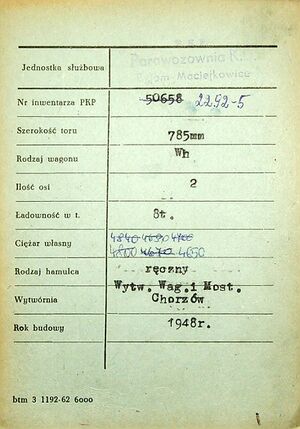 PKP
Parowozownia K.
Bytom-Maciejkowice
Jednostka służbowa
Nr inwentarza PKP 50658 2292-5
Szerokość toru 785mm
Rodzaj wagonu Wh
Ilość osi 2
Ładowność w t. 8t.
Ciężar własny 4840 4690 4700
4800 4670 4650
Rodzaj hamulca ręczny
Wytwórnia Wytw. Wag.i Most.
Chorzów
Rok budowy 1948r.
btm 3 1192-62 6000